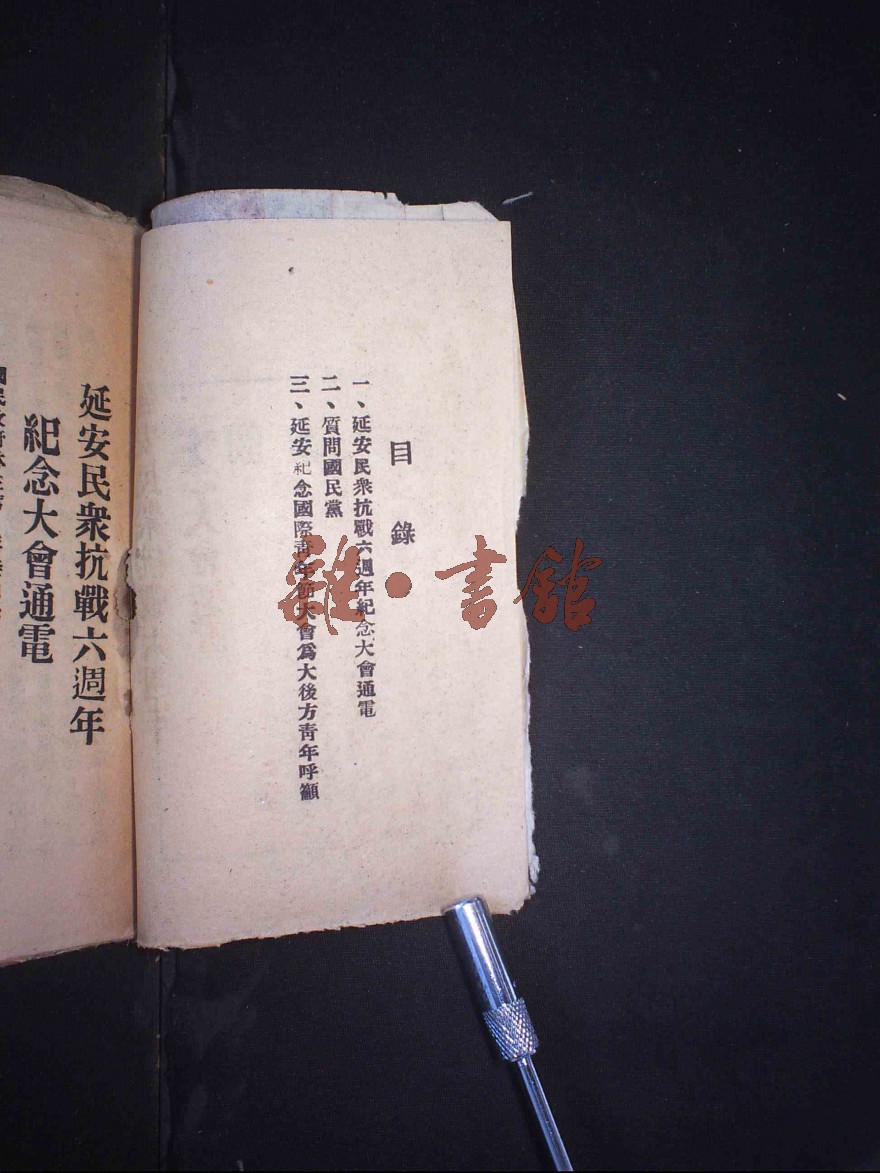 目錄
一、延安民衆抗戰六週年紀念大會通電
二、質問國民黨
三、延安紀念國際青年節大會爲大後方青年呼籲
延安民衆抗戰六週年
紀念大會通電
國民政府林主席
雜·書館